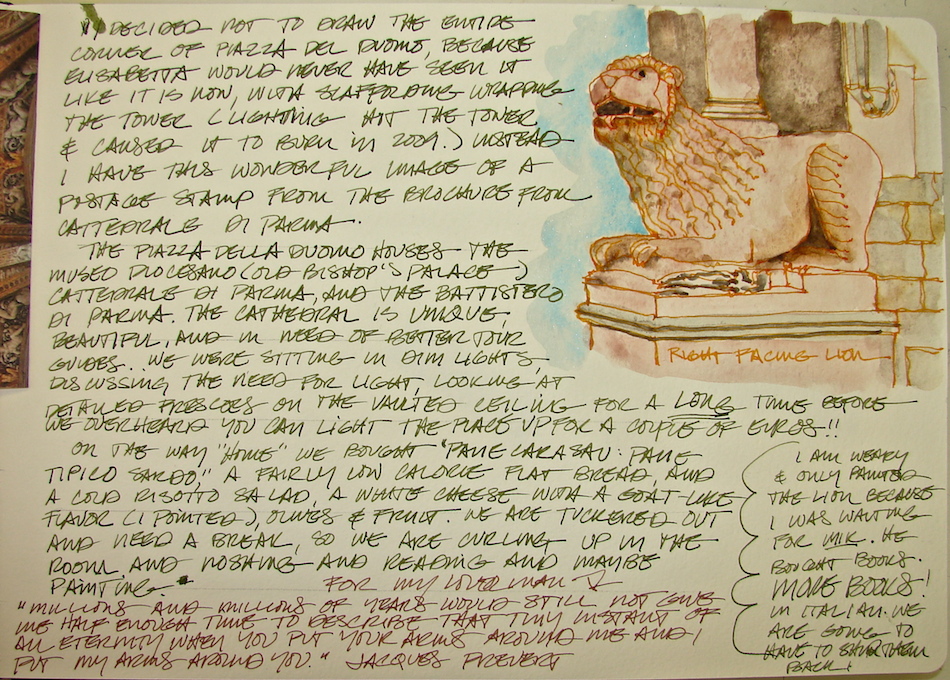 I DECIDED NOT TO DRAW THE ENTIRE
CORNER OF PIAZZA DEL DUOMO, BECAUSE
ELISABETTA WOULD NEVER HAVE SEEN IT
LIKE IT IS NOW, WITH SCAFFOLDING WRAPPING
THE TOWER (LIGHTNING HIT THE TOWER
& CAUSED IT TO BURN IN 2009.) INSTEAD
I HAVE THIS WONDERFUL IMAGE OF A
POSTAGE STAMP FROM THE BROCHURE FROM
CATTEDRALE DI PARMA.
THE PIAZZA DELLA DUOMO HOUSES THE
MUSEO DIOCESANO (OLD BISHOP'S PALACE)
CATTEDRALE DI PARMA, AND THE BATTISTERO
DI PARMA. THE CATHEDRAL IS UNIQUE,
BEAUTIFUL, AND IN NEED OF BETTER TOUR
GUIDES... WE WERE SITTING IN DIM LIGHTS,
DISCUSSING THE NEED FOR LIGHT, LOOKING AT
DETAILED FRESCOES ON THE VAULTED CEILING FOR A LONG TIME BEFORE
WE OVERHEARD YOU CAN LIGHT THE PLACE UP FOR A COUPLE OF EUROS!!
ON THE WAY "HOME" WE BOUGHT "PANE CARASAU: PANE
TIPICO SARDO," A FAIRLY LOW CALORIE FLAT BREAD, AND
A COLD RISOTTO SALAD, A WHITE CHEESE WITH A GOAT-LIKE
FLAVOR (I POINTED), OLIVES & FRUIT. WE ARE TUCKERED OUT
AND NEED A BREAK, SO WE ARE CURLING UP IN THE
ROOM AND NOSHING AND READING AND MAYBE
PAINTING.
FOR MY LOVED MAN
"MILLIONS AND MILLIONS OF YEARS WOULD STILL NOT GIVE
ME HALF ENOUGH TIME TO DESCRIBE THAT TINY INSTANT OF
AN ETERNITY WHEN YOU PUT YOUR ARMS AROUND ME AND I
PUT MY ARMS AROUND YOU." JACQUES PREVERT
RIGHT FACING LION
I AM WEARY
& ONLY PAINTED
THE LION BECAUSE
I WAS WAITING
FOR MIK. HE
BOUGHT BOOKS.
MORE BOOKS!
IN ITALIAN. WE
ARE GOING TO
HAVE TO SHIP THEM
BACK!